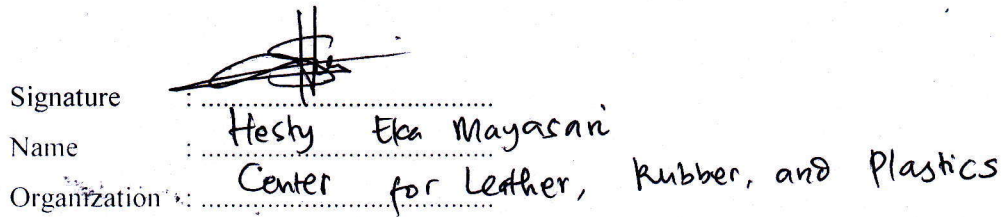 Signature :
Name : Hesty Eka Mayasari
Organization : Center for Leather, Rubber, and Plastics